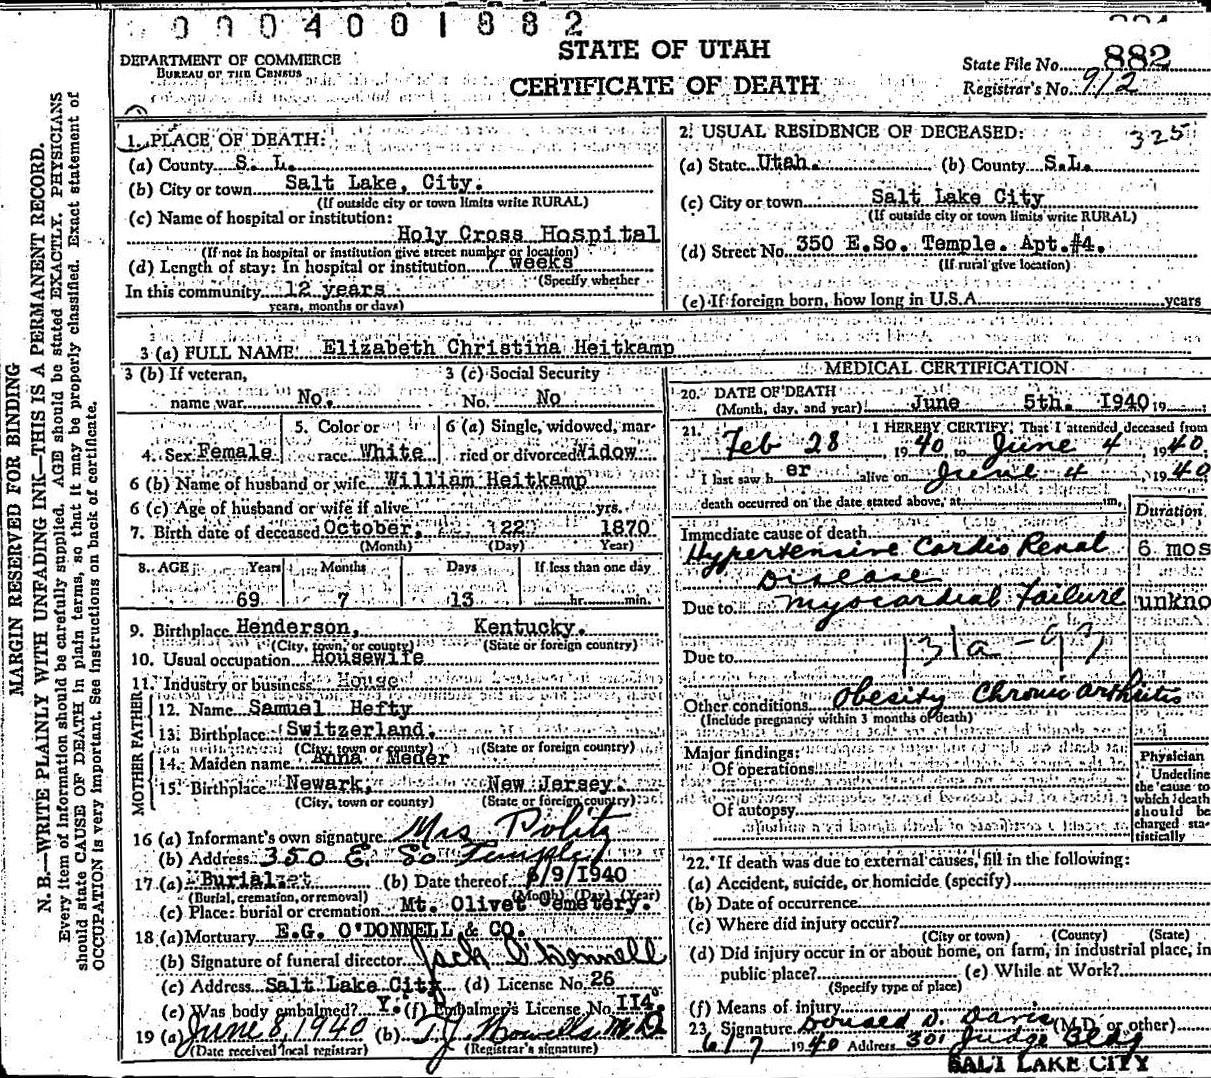 0004001882
STATE OF UTAH
CERTIFICATE OF DEATH
DEPARTMENT OF COMMERCE
BUREAU OF THE CENSUS
State File No. 882
Registrar's No. 912
MARGIN RESERVED FOR BINDING
N. B.—WRITE PLAINLY WITH UNFADING INK—THIS IS A PERMANENT RECORD.
Every item of information should be carefully supplied. AGE should be stated EXACTLY. PHYSICIANS
should state CAUSE OF DEATH in plain terms, so that it may be properly classified. Exact statement of
OCCUPATION is very important. See instructions on back of certificate.
1. PLACE OF DEATH:
(a) County S. L.
(b) City or town Salt Lake, City.
(If outside city or town limits write RURAL)
(c) Name of hospital or institution:
Holy Cross Hospital
(If not in hospital or institution give street number or location)
(d) Length of stay: In hospital or institution 7 weeks
(Specify whether
In this community 12 years
years, months or days)
2. USUAL RESIDENCE OF DECEASED: 325
(a) State Utah. (b) County S.L.
(c) City or town Salt Lake City
(If outside city or town limits write RURAL)
(d) Street No. 350 E.So. Temple. Apt.#4.
(If rural give location)
(e) If foreign born, how long in U.S.A. years
3 (a) FULL NAME. Elizabeth Christina Heitkamp
3 (b) If veteran,
name war No.
3 (c) Social Security
No. No
4. Sex Female
5. Color or
race White
6 (a) Single, widowed, mar-
ried or divorced Widow
6 (b) Name of husband or wife William Heitkamp
6 (c) Age of husband or wife if alive, yrs.
7. Birth date of deceased October, 22 1870
(Month) (Day) Year)
8. AGE Years Months Days If less than one day
69 7 13 hr. min.
9. Birthplace Henderson, Kentucky.
(City, town, or county) (State or foreign country)
10. Usual occupation Housewife
11. Industry or business House
FATHER
12. Name Samuel Hefty
13. Birthplace Switzerland.
(City, town or county) (State or foreign country)
MOTHER
14. Maiden name Anna Meder
15. Birthplace Newark, New Jersey.
(City, town or county) (State or foreign country)
16 (a) Informant's own signature Mrs Politz
(b) Address 350 E. So Temple
17 (a) Burial (b) Date thereof 6/9/1940
(Burial, cremation, or removal) (Month) (Day) (Year)
(c) Place: burial or cremation Mt. Olivet Cemetery.
18 (a) Mortuary E.G. O'DONNELL & CO.
(b) Signature of funeral director Jack O'Donnell
(c) Address Salt Lake City (d) License No. 26
(e) Was body embalmed? Y. (f) Embalmer's License, No. 114
19 (a) June 8, 1940 (b) T.J. Howells M.D.
(Date received local registrar) (Registrar's signature)
MEDICAL CERTIFICATION
20. DATE OF DEATH
(Month, day, and year) June 5th. 1940, 19
21. I HEREBY CERTIFY, That I attended deceased from
Feb 28 1940, to June 4, 1940.
I last saw her alive on June 4, 1940
death occurred on the date stated above, at m.
Duration
Immediate cause of death
Hypertensive Cardio Renal 6 mos
Disease
Due to myocardial Failure unkno
Due to 131a-93
Other conditions Obesity Chronic arthritis
(Include pregnancy within 3 months of death)
Major findings:
Of operations
Of autopsy
Physician
Underline
the cause to
which death
should be
charged sta-
tistically
22. If death was due to external causes, fill in the following:
(a) Accident, suicide, or homicide (specify)
(b) Date of occurrence
(c) Where did injury occur?
(City or town) (County) (State)
(d) Did injury occur in or about home, on farm, in industrial place, in
public place? (e) While at Work?
(Specify type of place)
(f) Means of injury
23. Signature Donald D. Davis (M.D. or other)
6/7 1940 Address 301 Judge Bldg
SALT LAKE CITY